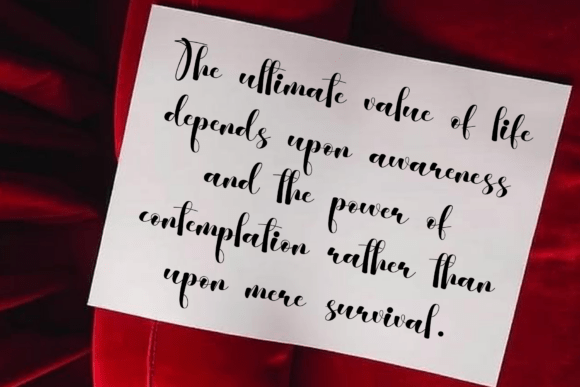 The ultimate value of life
depends upon awareness
and the power of
contemplation rather than
upon mere survival.